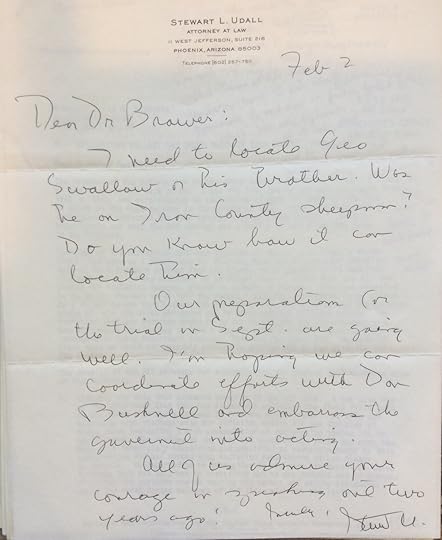 STEWART L. UDALL
ATTORNEY AT LAW
11 WEST JEFFERSON, SUITE 216
PHOENIX, ARIZONA 85003
TELEPHONE (602) 257-
Feb 2
Dear Dr Brower:
I need to locate Geo
Swallow or his brother. Was
he an Iron County sheepman?
Do you know how I can
locate him.
Our preparations for
the trial in Sept. are going
well. I'm hoping we can
coordinate efforts with Dan
Bushnell and embarrass the
government into acting.
All of us admire your
courage in speaking out two
years ago!
Stew U.